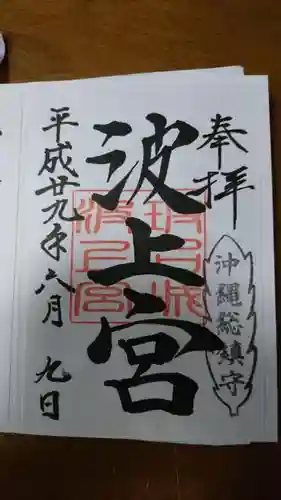 奉拝
沖縄総鎮守
波上宮
平成廿九年六月九日